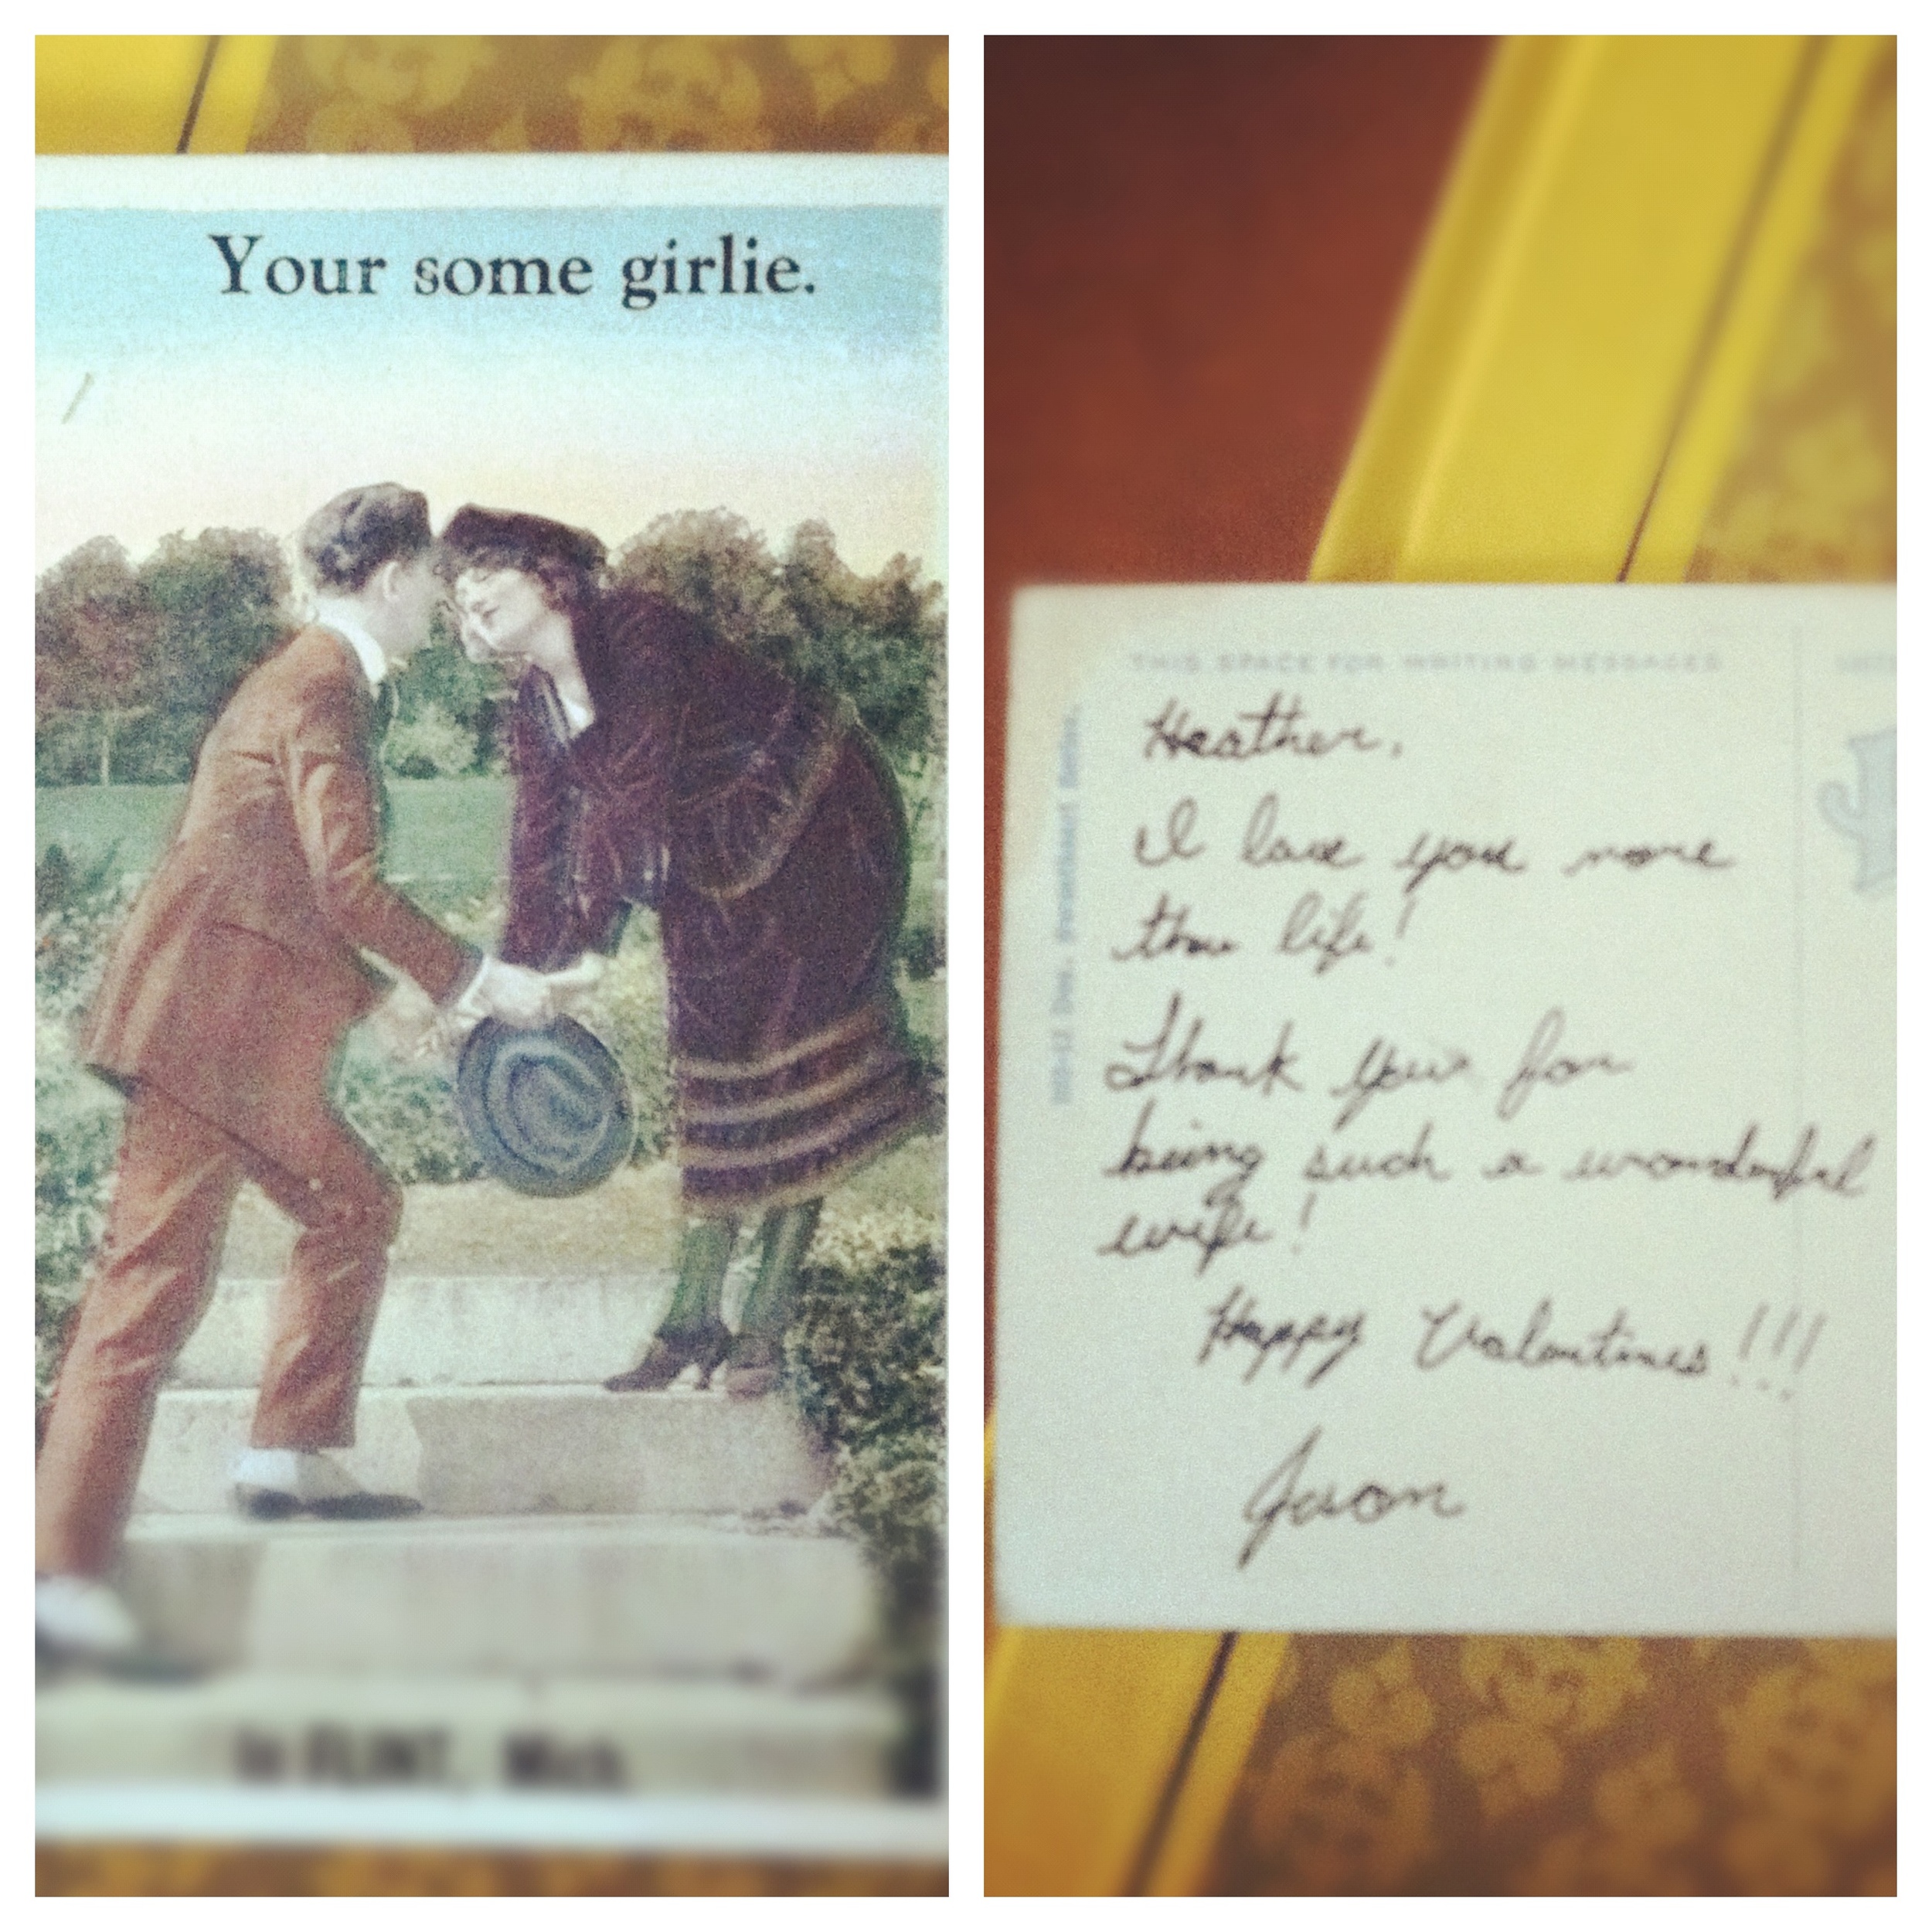 Your some girlie.
In FLINT, Mich.
THIS SPACE FOR WRITING MESSAGES
Heather,
I love you more
than life!
Thank you for
being such a wonderful
wife!
Happy Valentines!!!
Jason